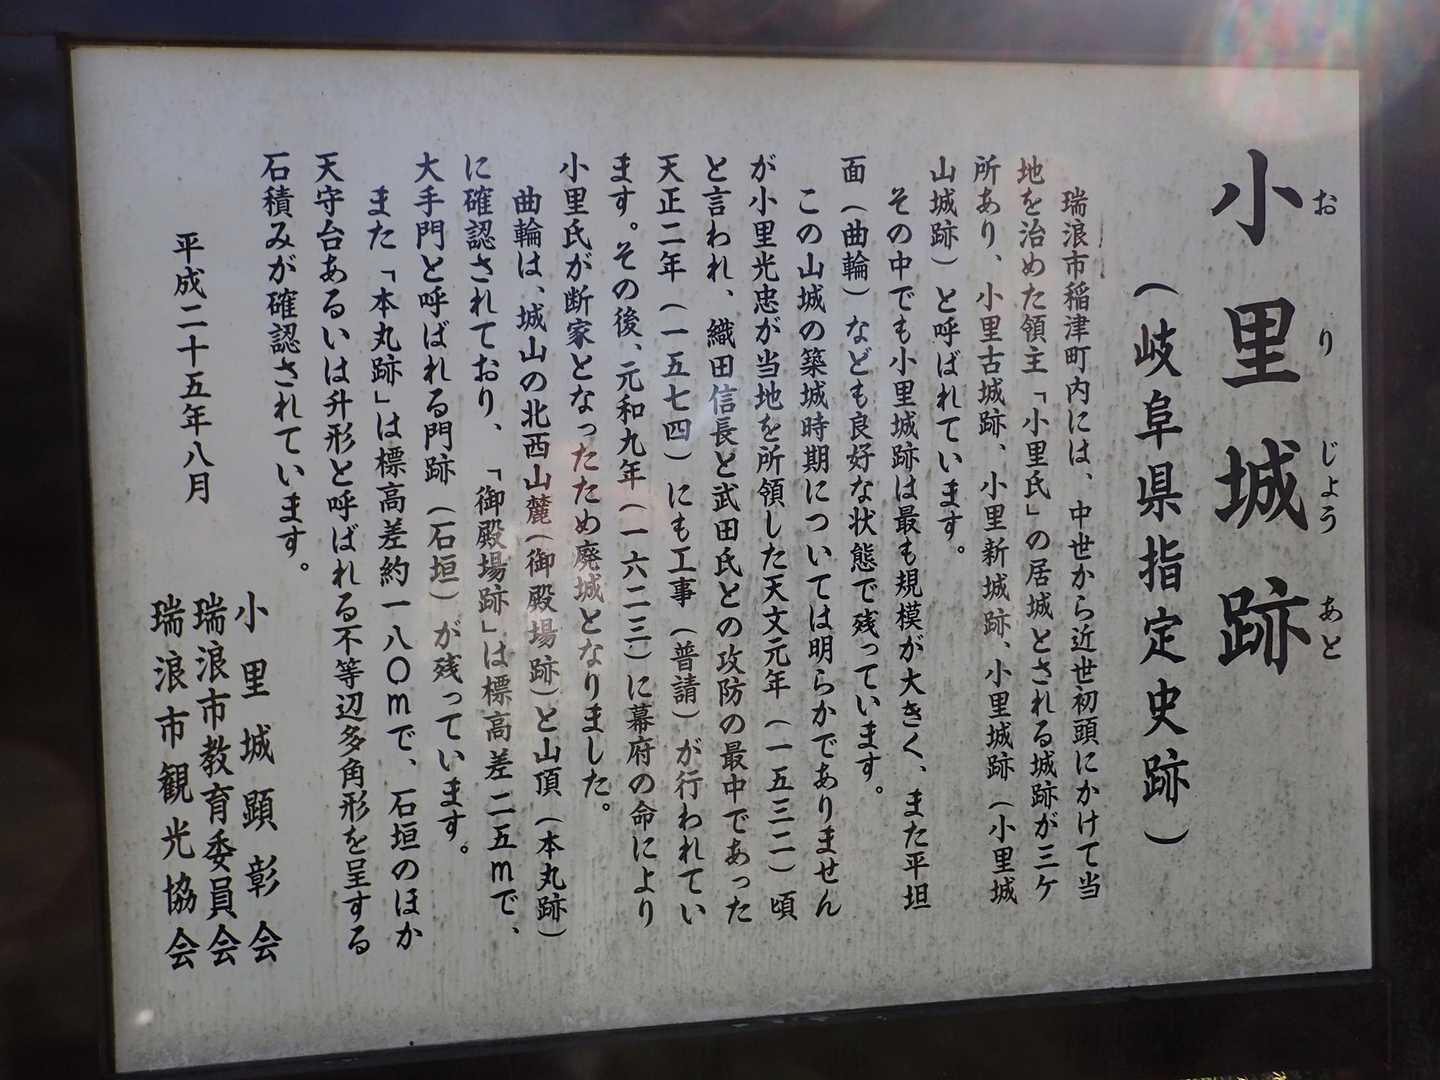 小里城跡
おりじょうあと
（岐阜県指定史跡）
瑞浪市稲津町内には、中世から近世初頭にかけて当
地を治めた領主「小里氏」の居城とされる城跡が三ケ
所あり、小里古城跡、小里新城跡、小里城跡（小里城
山城跡）と呼ばれています。
その中でも小里城跡は最も規模が大きく、また平坦
面（曲輪）なども良好な状態で残っています。
この山城の築城時期については明らかでありません
が小里光忠が当地を所領した天文元年（一五三二）頃
と言われ、織田信長と武田氏との攻防の最中であった
天正二年（一五七四）にも工事（普請）が行われてい
ます。その後、元和九年（一六二三）に幕府の命により
小里氏が断家となったため廃城となりました。
曲輪は、城山の北西山麓（御殿場跡）と山頂（本丸跡）
に確認されており、「御殿場跡」は標高差二五ｍで、
大手門と呼ばれる門跡（石垣）が残っています。
また「本丸跡」は標高差約一八〇ｍで、石垣のほか
天守台あるいは升形と呼ばれる不等辺多角形を呈する
石積みが確認されています。
平成二十五年八月
小里城顕彰会
瑞浪市教育委員会
瑞浪市観光協会